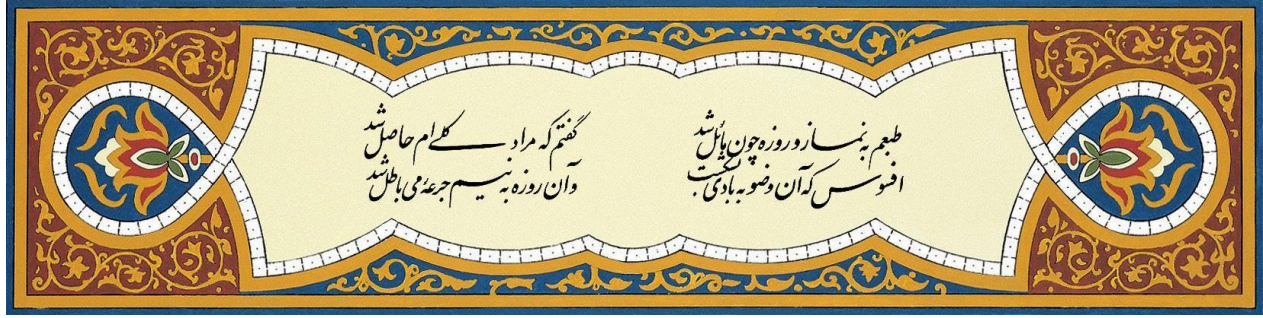 طبعم به نماز و روزه چون مائل شد
گفتم که مراد کلی ام حاصل شد
افسوس که آن وضو به بادی بشکست
وآن روزه به نیم جرعهٔ می باطل شد